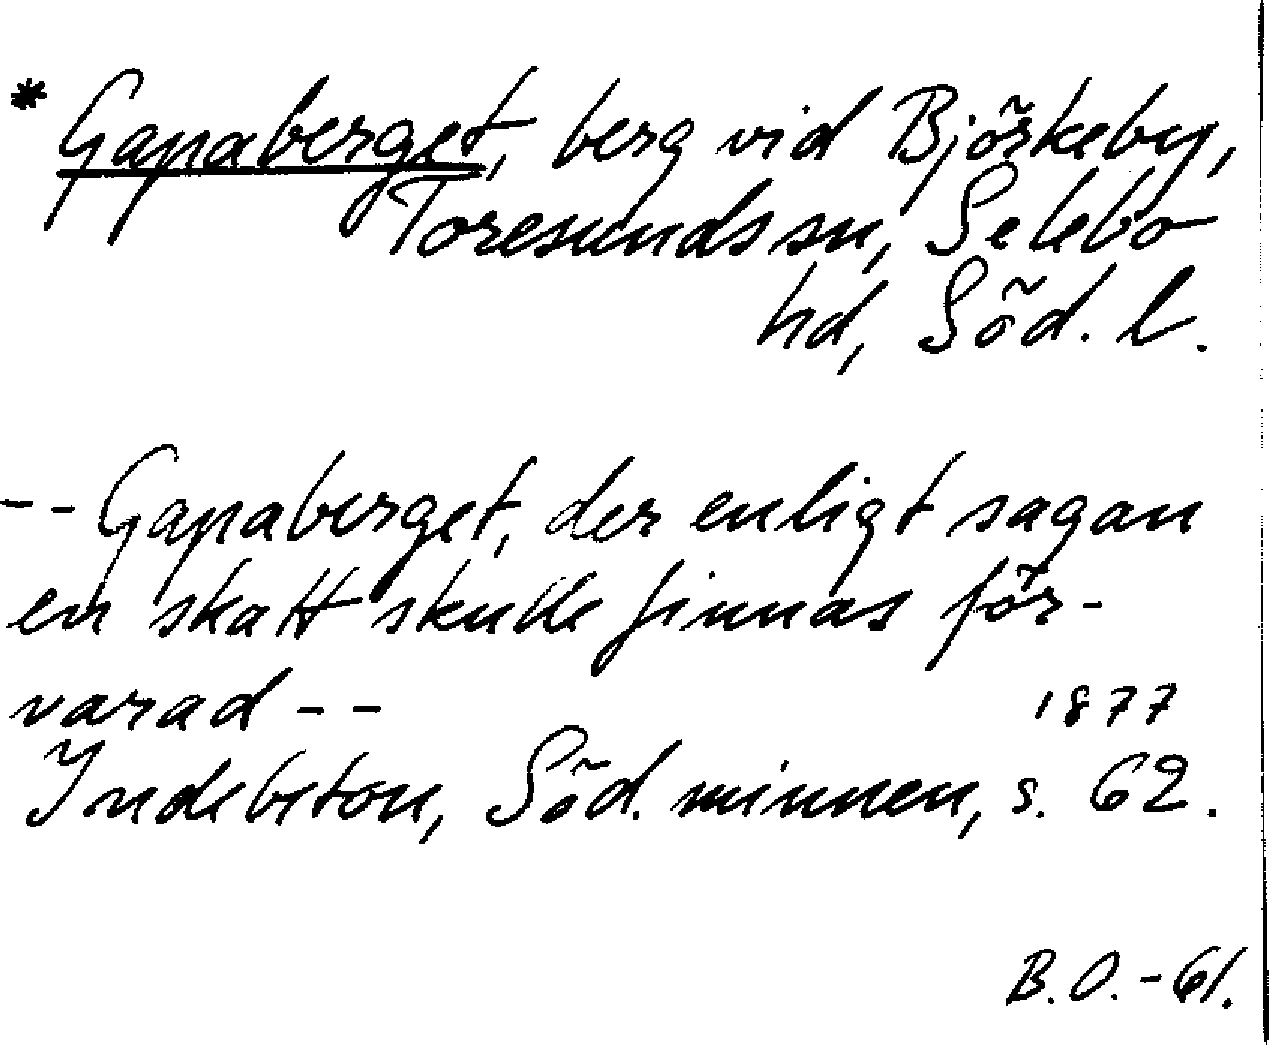 * Gapaberget, berg vid Björkeby,
Toresunds sn, Selebo
hd, Söd. l.
-- Gapaberget, der enligt sagan
en skatt skulle finnas för-
varad --
1877
Indebetou, Söd. minnen, s. 62.
B.O. -61.